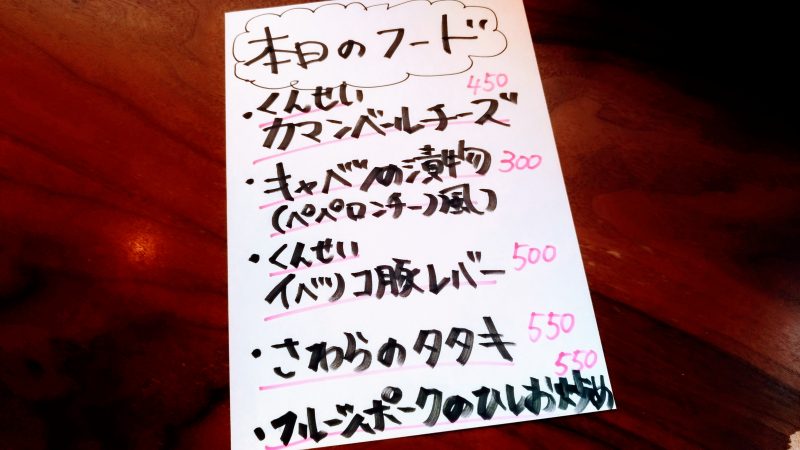 本日のフード
・くんせい 450
カマンベールチーズ
・キャベツの漬物 300
(ペペロンチーノ風)
・くんせい
イベリコ豚レバー 500
・さわらのタタキ 550
550
・フルーツポークのひしお炒め